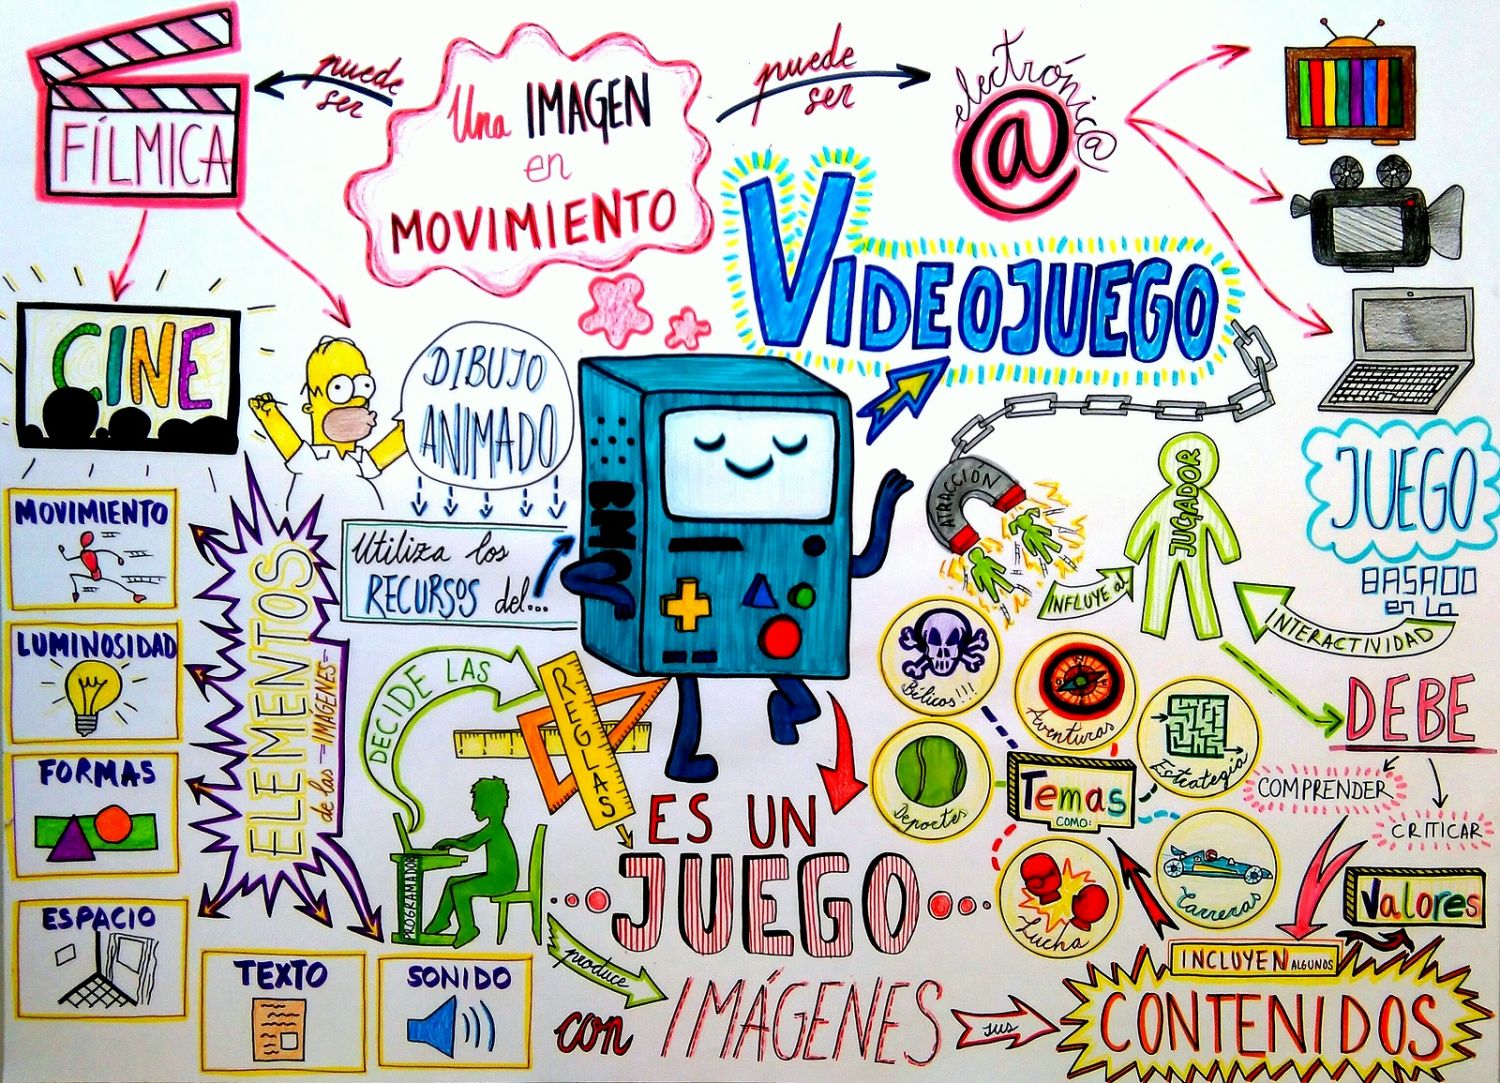 Una IMAGEN
en
MOVIMIENTO
puede
ser
FÍLMICA
puede
ser
electrónic@
@
CINE
DIBUJO
ANIMADO
Utiliza los
RECURSOS del...
VIDEOJUEGO
BMO
ATRACCIÓN
INFLUYE al
JUGADOR
JUEGO
BASADO
en la
INTERACTIVIDAD
DEBE
COMPRENDER
CRITICAR
Valores
ELEMENTOS
de las IMÁGENES
MOVIMIENTO
LUMINOSIDAD
FORMAS
ESPACIO
TEXTO
SONIDO
PROGRAMADOR
DECIDE LAS
REGLAS
produce
ES UN
JUEGO
con IMÁGENES
sus
CONTENIDOS
INCLUYEN ALGUNOS
Temas
COMO:
Bélicos!!!
Aventuras
Estrategia
Deportes
Lucha
Carreras